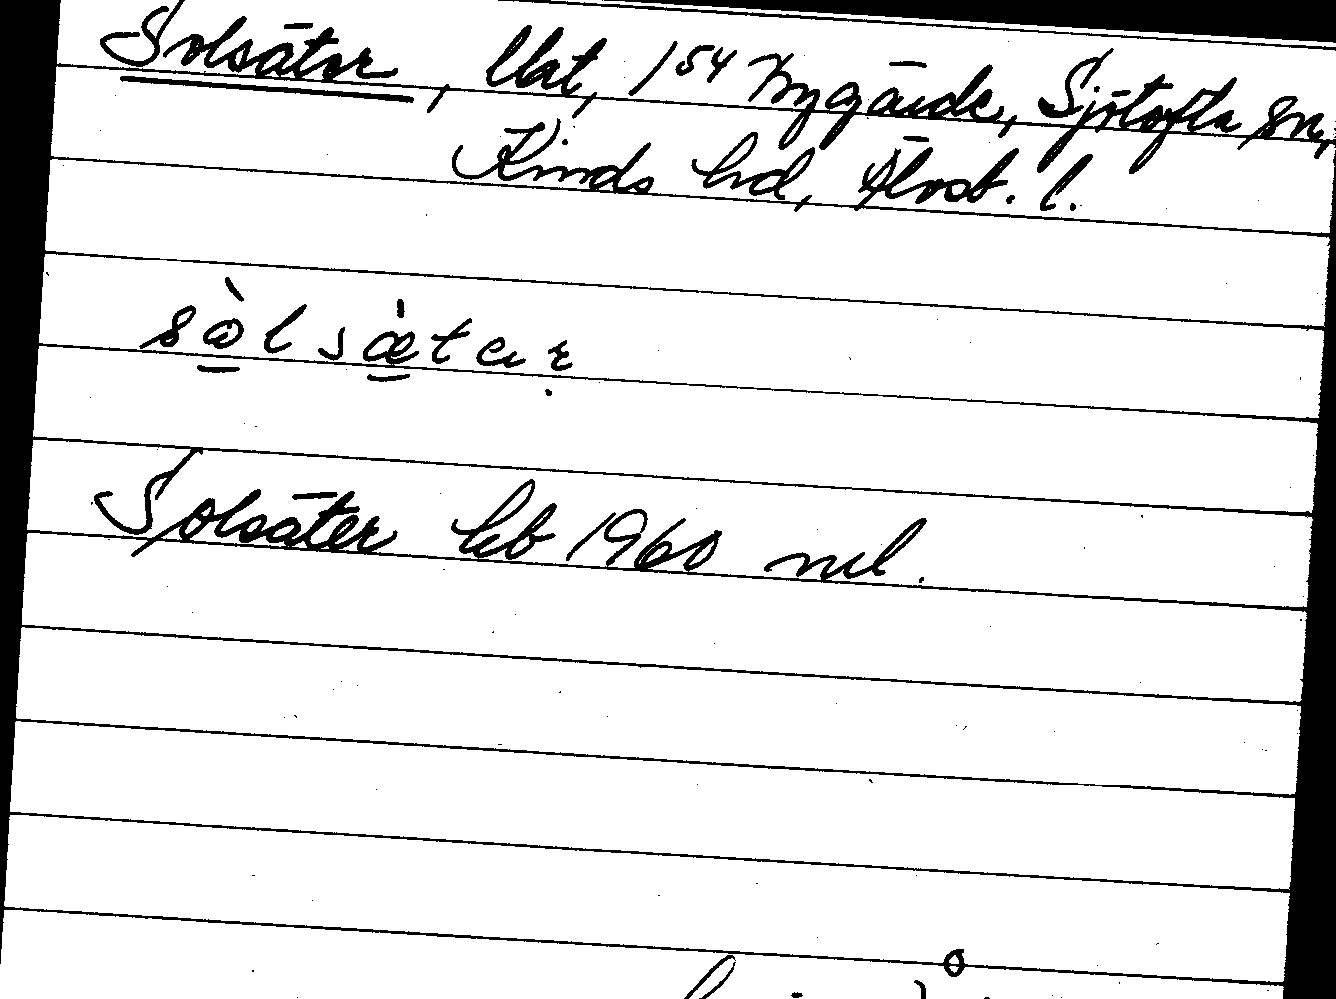 Solsäter, lht, 1⁵⁴ Nygärde, Sjötofta sn,
Kinds hd, Älvsb. l.
sὰlsæ̀tar
Solsäter kb 1960 ml.